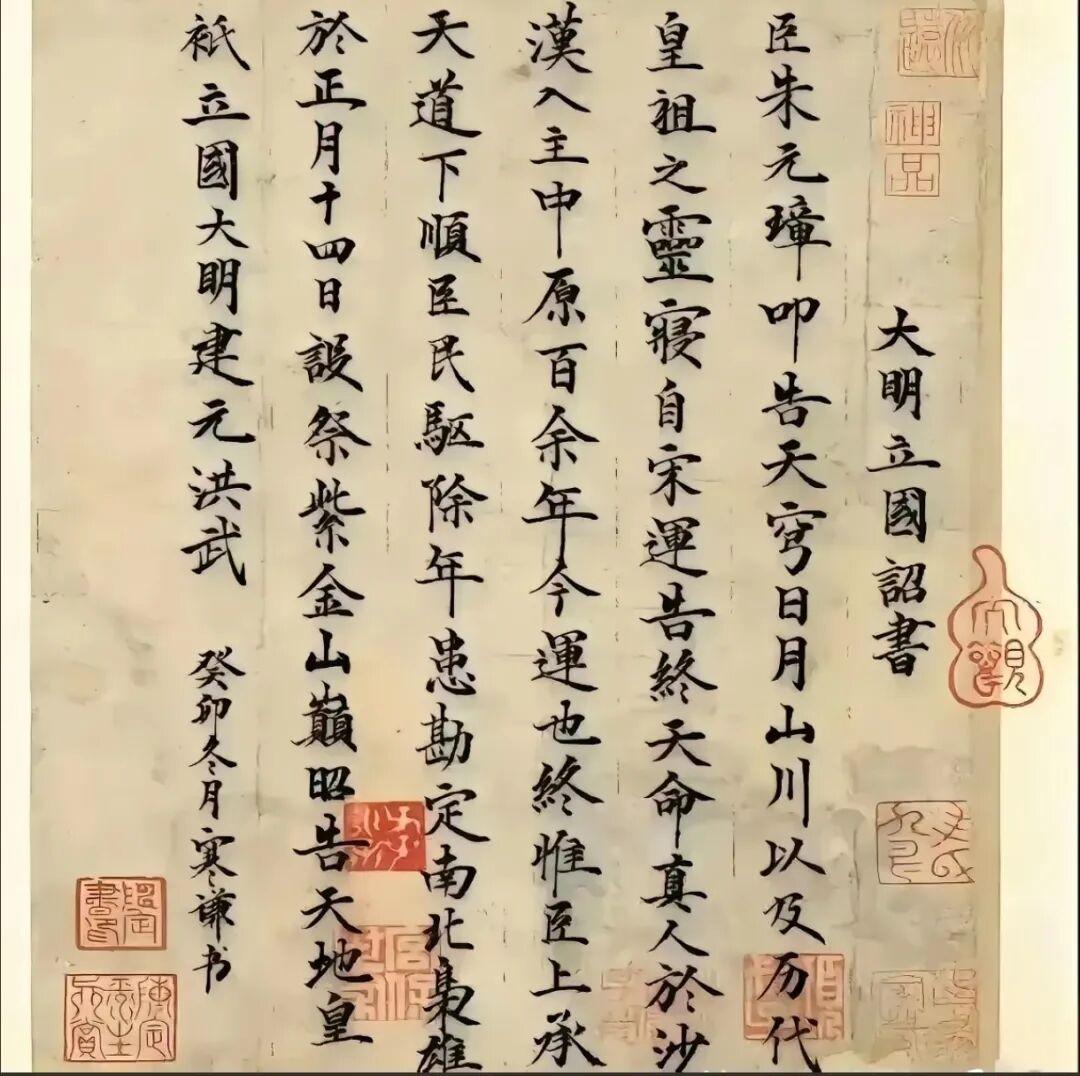 神品
大觀
大明立國詔書
臣朱元璋叩告天穹日月山川以及历代
皇祖之靈寢自宋運告終天命真人於沙
漢入主中原百余年今運也終惟臣上承
天道下順臣民駆除年患勘定南北梟雄
於正月十四日設祭紫金山巔昭告天地皇
祇立國大明建元洪武
癸卯冬月寒谦书